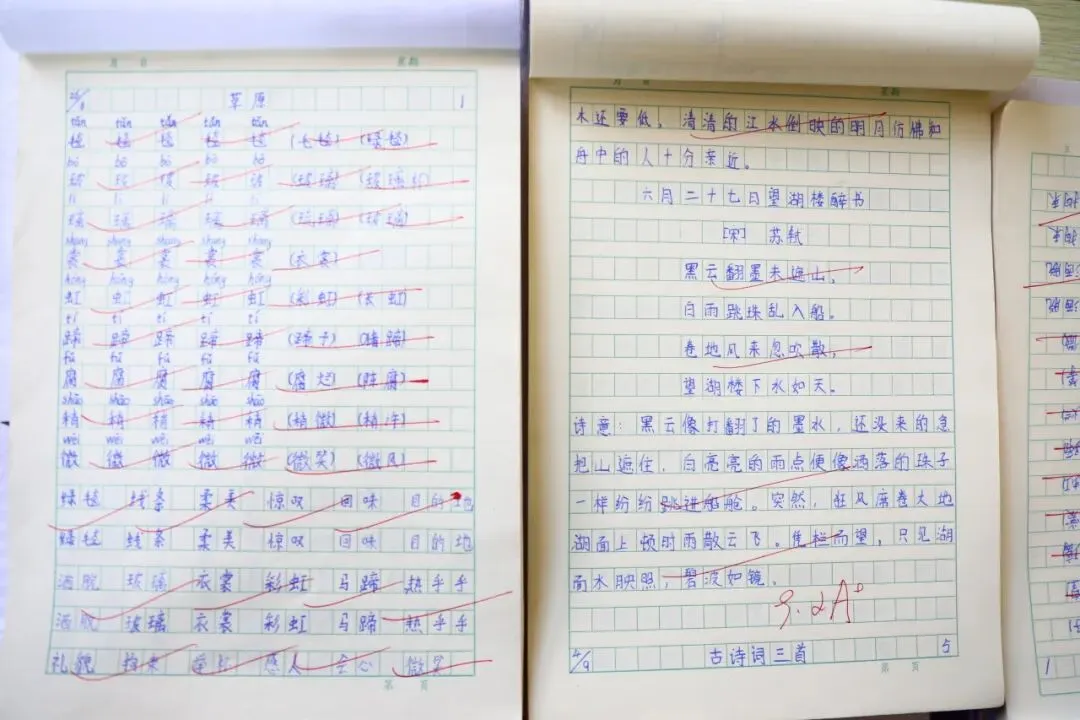 月 日 星期
草原 1
tǎn tǎn tǎn tǎn tǎn
毯 毯 毯 毯 毯 (毛毯) (绿毯)
bō bō bō bō bō
玻 玻 玻 玻 玻 (玻璃) (玻璃杯)
lí lí lí lí lí
璃 璃 璃 璃 璃
shang shang shang shang shang
裳 裳 裳 裳 裳 (衣裳)
hóng hóng hóng hóng hóng
虹 虹 虹 虹 虹 (彩虹) (长虹)
tí tí tí tí tí
蹄 蹄 蹄 蹄 蹄 (蹄子) (马蹄)
fǔ fǔ fǔ fǔ fǔ
腐 腐 腐 腐 腐 (腐烂) (陈腐)
shāo shāo shāo shāo shāo
稍 稍 稍 稍 稍 (稍微) (稍许)
wēi wēi wēi wēi wēi
微 微 微 微 微 (微笑) (微风)
绿毯 线条 柔美 惊叹 回味 目的地
绿毯 线条 柔美 惊叹 回味 目的地
洒脱 玻璃 衣裳 彩虹 马蹄 热乎乎
洒脱 玻璃 衣裳 彩虹 马蹄 热乎乎
礼貌 感人 会心 微笑
第 页
月 日 星期
木还要低,清清的江水倒映的明月仿佛和
舟中的人十分亲近。
六月二十七日望湖楼醉书
[宋] 苏轼
黑云翻墨未遮山,
白雨跳珠乱入船。
卷地风来忽吹散,
望湖楼下水如天。
诗意:黑云像打翻了的墨水,还没来的急
把山遮住,白亮亮的雨点便像洒落的珠子
一样纷纷跳进船舱。突然,狂风席卷大地
湖面上顿时雨散云飞。凭栏而望,只见湖
面水映照,碧波如镜。
9.2 A+
4/9 古诗词三首 5
第 页